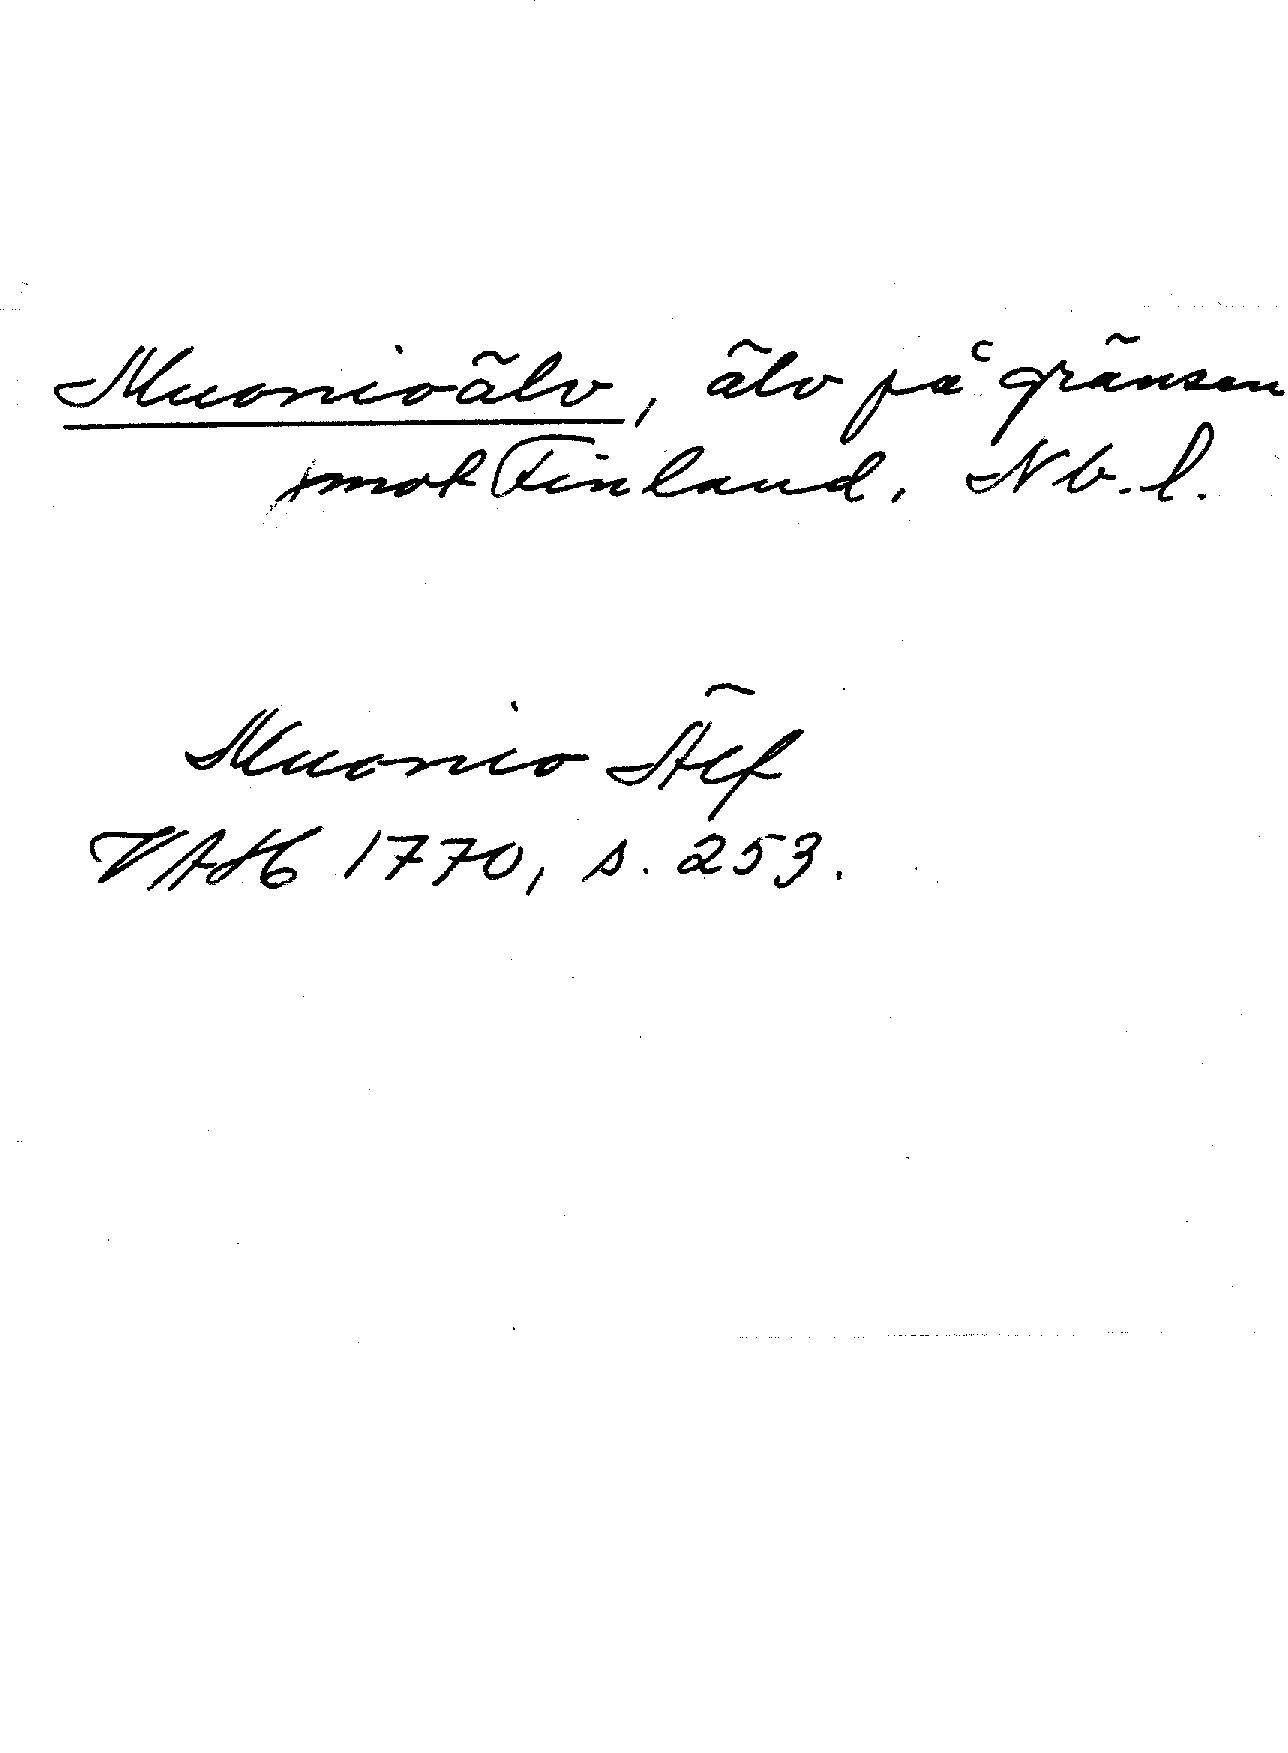 Muonioälv, älv på gränsen
mot Finland, Nb.l.
Muonio Älf
VAH 1770, s. 253.